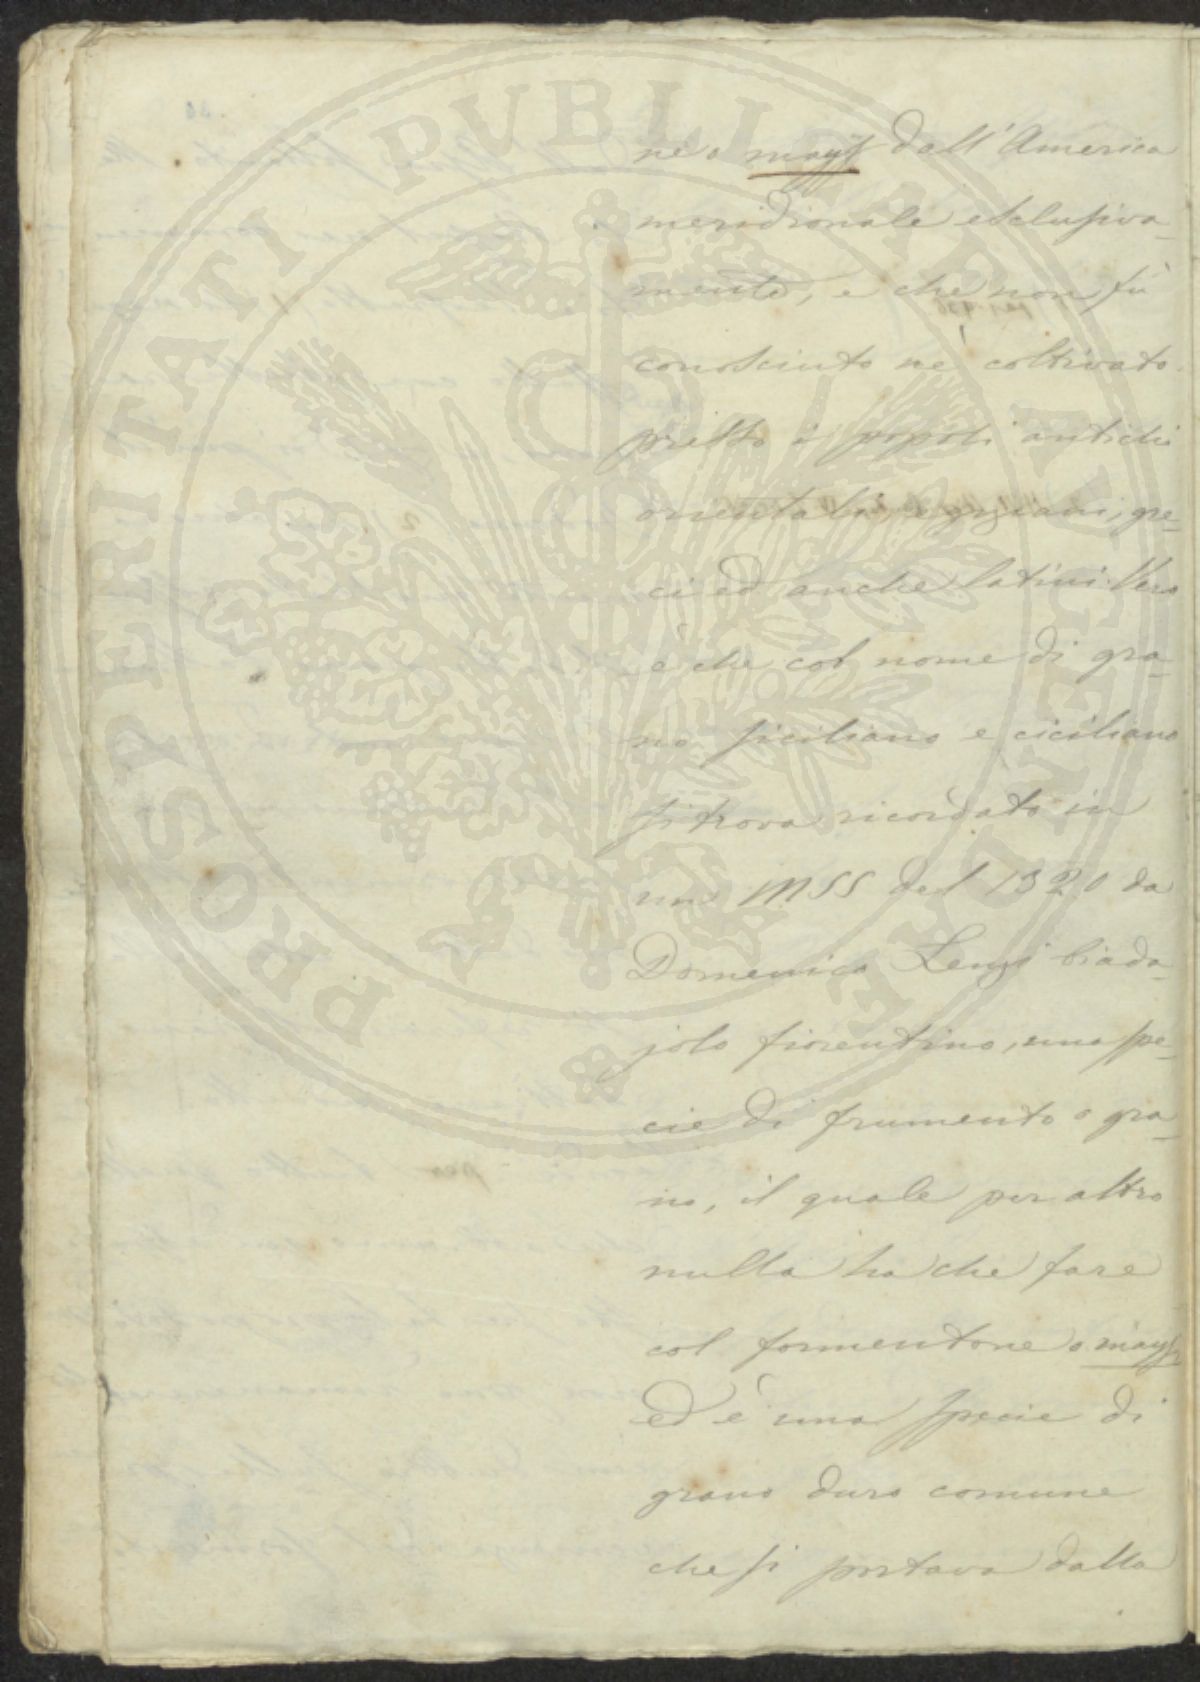 ne o mays dall'America
meridionale esclusiva-
mente, e che non fù
conosciuto nè coltivato
presso i popoli antichi
orientali, egiziani, gre-
ci ed anche latini. Vero
è che col nome di gra-
no siciliano e ciciliano
si trova ricordato in
un MSS del 1320 da
Domenico Lenzi biada-
jolo fiorentino, una spe-
cie di frumento o gra-
no, il quale per altro
nulla ha che fare
col formentone o mays
ed è una specie di
grano duro comune
che si portava dalla
PROSPERITATI PUBLICAE AUGENDAE